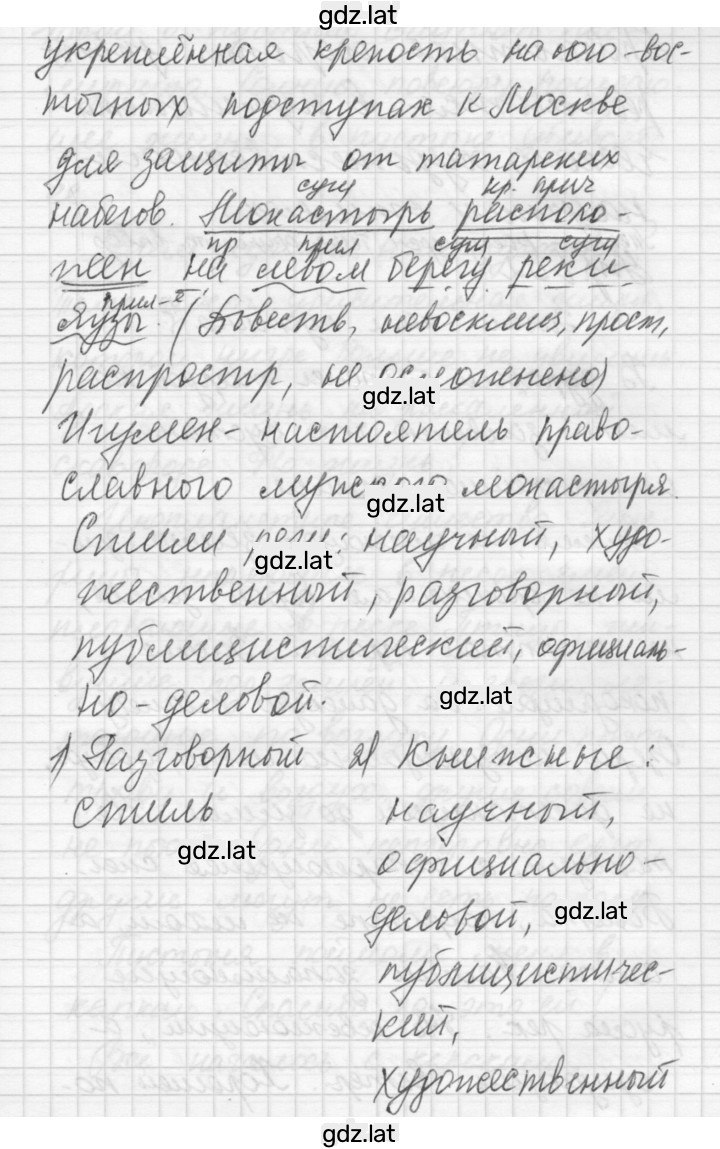 gdz.lat
укреплённая крепость на юго-вос-
точных подступах к Москве
для защиты от татарских
сущ кр. прич
набегов. Монастырь располо-
пр прил сущ сущ
жен на левом берегу реки
прил-е
Яузы. (Повеств, невосклиц, прост,
распростр, не осложнено)
gdz.lat
Игумен - настоятель право-
славного мужского монастыря.
gdz.lat
Стили речи: научный, худо-
gdz.lat
жественный, разговорный,
публицистический, официаль-
но-деловой.
gdz.lat
1) Разговорный 2) Книжные:
стиль научный,
gdz.lat
официально-
деловой,
gdz.lat
публицистичес-
кий,
художественный
gdz.lat